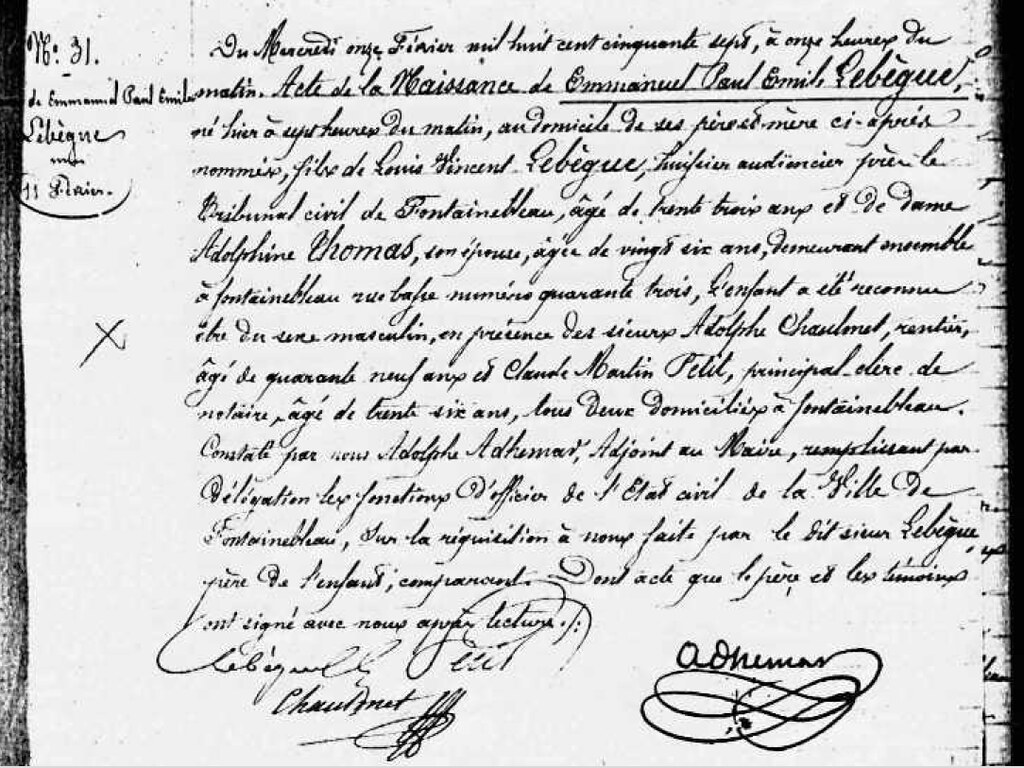 N.º 31.
de Emmanuel Paul Emile
Lebègue
11 Février.
Du Mercredi onze Février mil huit cent cinquante sept, à onze heures du
matin. Acte de la Naissance de Emmanuel Paul Emile Lebègue,
né hier à sept heures du matin, au domicile de ses père et mère ci-après
nommés, fils de Louis Vincent Lebègue, huissier audiencier près le
Tribunal civil de Fontainebleau, âgé de trente trois ans et de dame
Adolphine Thomas, son épouse, âgée de vingt six ans, demeurant ensemble
à fontainebleau rue basse numéro quarante trois, L'enfant a été reconnu
être du sexe masculin, en présence des sieurs Adolphe Chaulmet, rentier,
âgé de quarante neuf ans et Claude Martin Petit, principal clerc de
notaire, âgé de trente six ans, tous deux domiciliés à fontainebleau.
Constaté par nous Adolphe Adhemar, Adjoint au Maire, remplissant par
délégation les fonctions d'officier de l'Etat civil de la Ville de
Fontainebleau, Sur la réquisition à nous faite par le dit sieur Lebègue,
père de l'enfant, comparant. Dont acte que le père et les témoins
ont signé avec nous après lecture ./.
Lebègue Petit Adhemar
Chaulmet